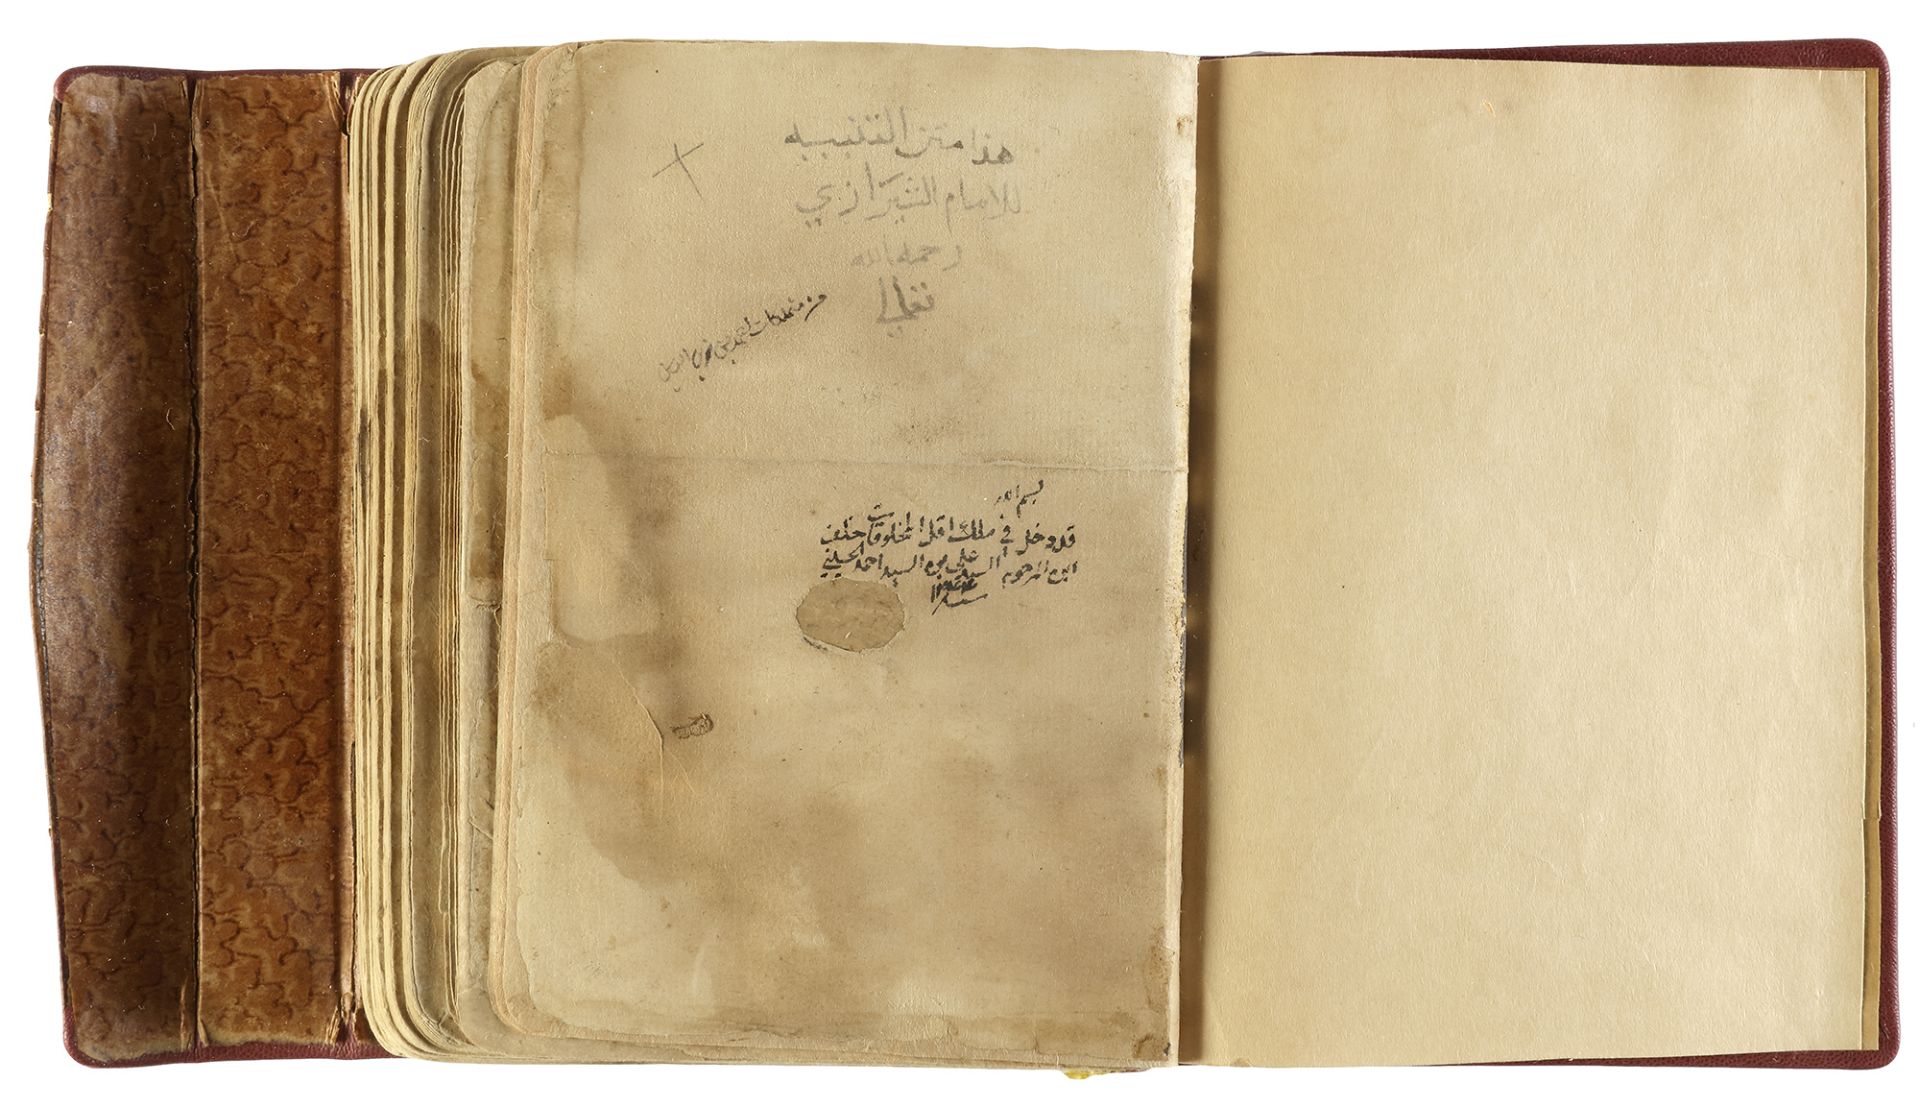 هذا متن التنبيه
للامام الشيرازي
رحمه الله
تعالى
من متملكات
بسم الله
قد دخل في ملك اقل المخلوقات خلف
ابن المرحوم السيد علي بن السيد احمد الحسيني
سنة